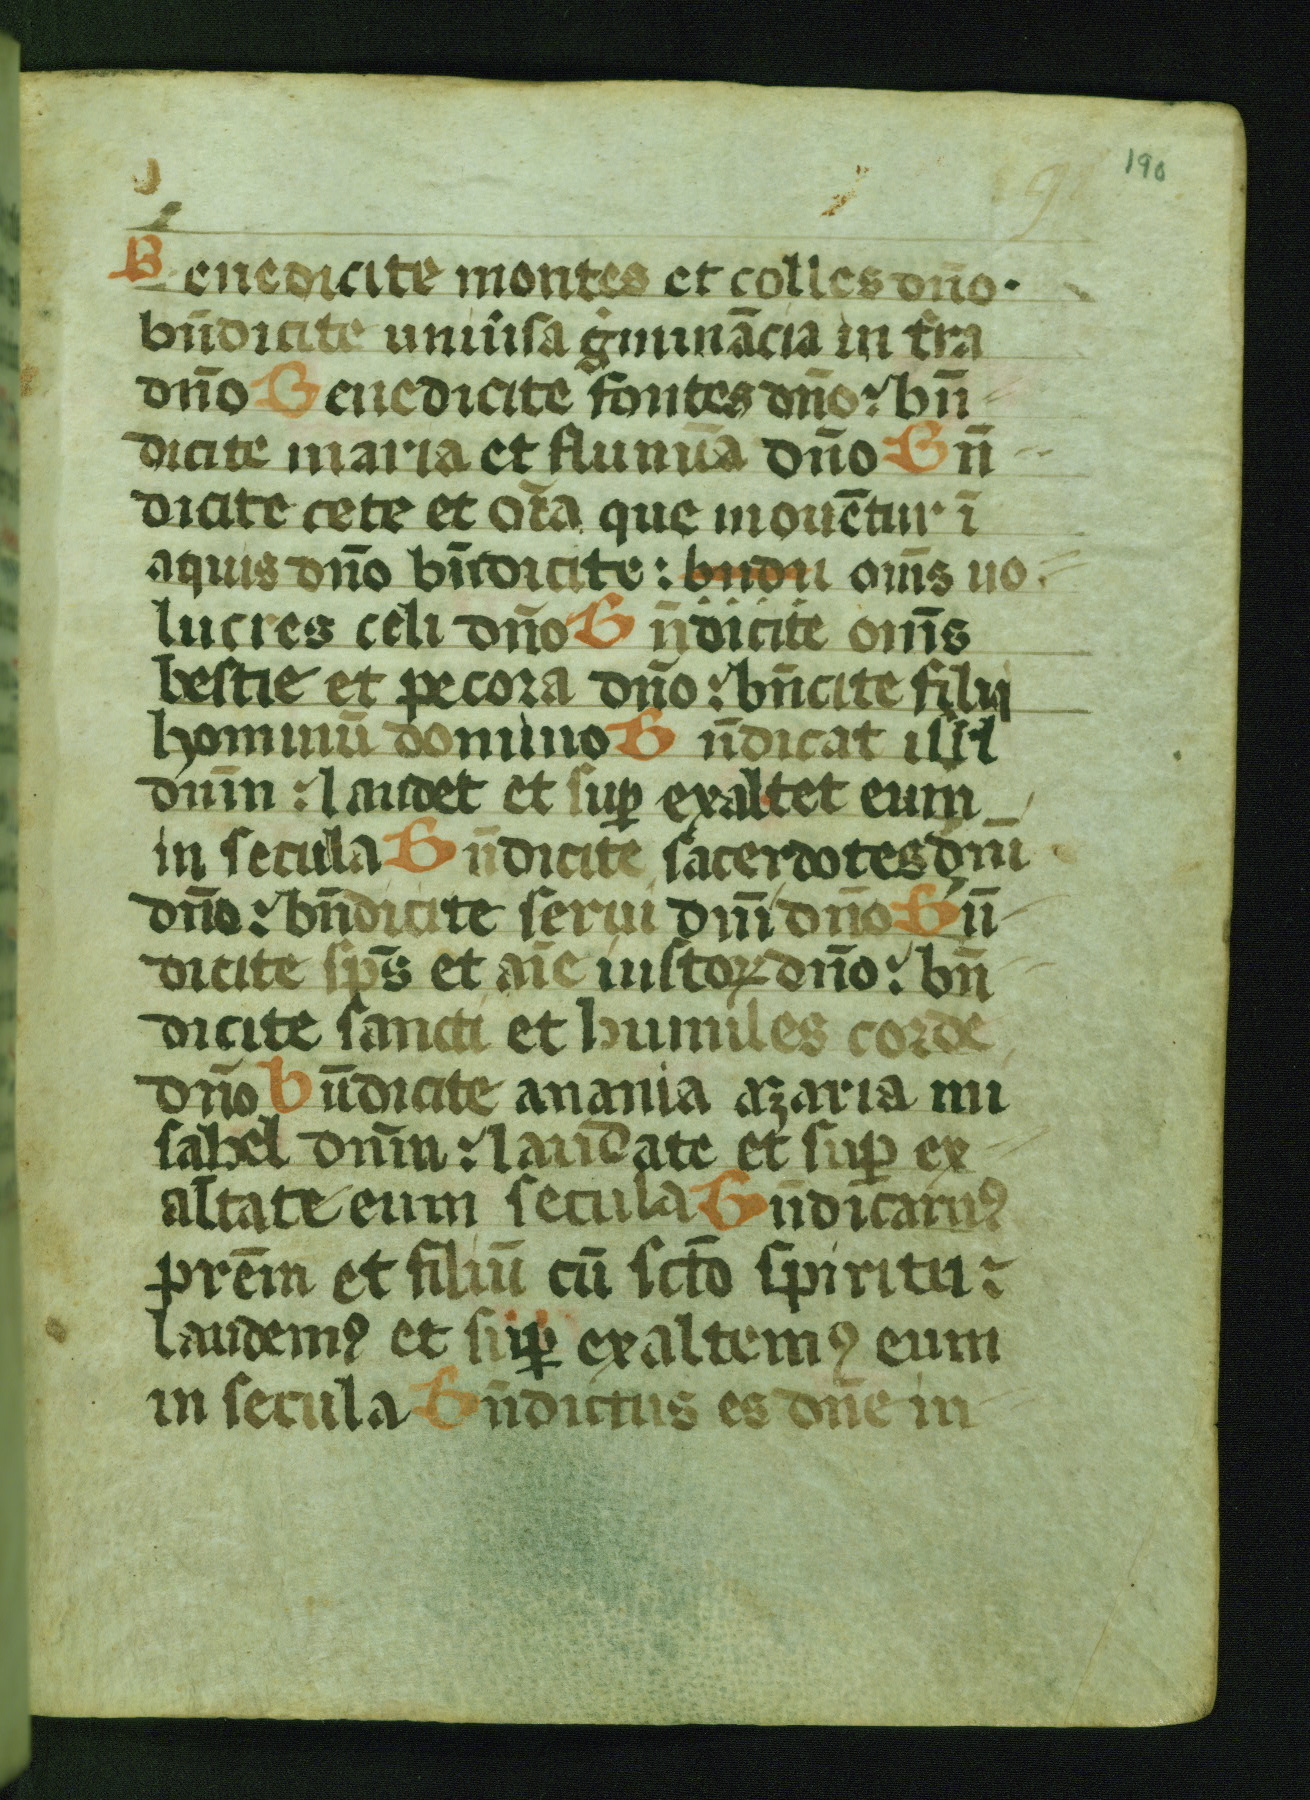 190
Benedicite montes et colles dño·
bñdicite uniu̇sa gͥminācia in t̄ra
dño Benedicite fontes dño: bñ
dicite maria et flumīa dño Bñ
dicite cete et om̄a que mouētur ī
aquis dño bñdicite: bndii om̄s uo
lucres celi dño Bñdicite om̄s
bestie et pecora dño: bñcite filii
hominū domino Bñdicat isl̄
dn̄m: laudet et suꝑ exaltet eum
in secula Bñdicite sacerdotes dn̄i
dño: bñdicite serui dn̄i dño Bñ
dicite sp̄s et aīe iustoꝝ dño: bñ
dicite sancti et humiles corde
dño bñdicite anania azaria mi
sahel dn̄m: laudate et suꝑ ex
altate eum secula Bñdicamꝰ
pr̄em et filiū cū sc̄to spiritu:
laudemꝰ et suꝑ exaltemꝰ eum
in secula Bñdictus es dñe in